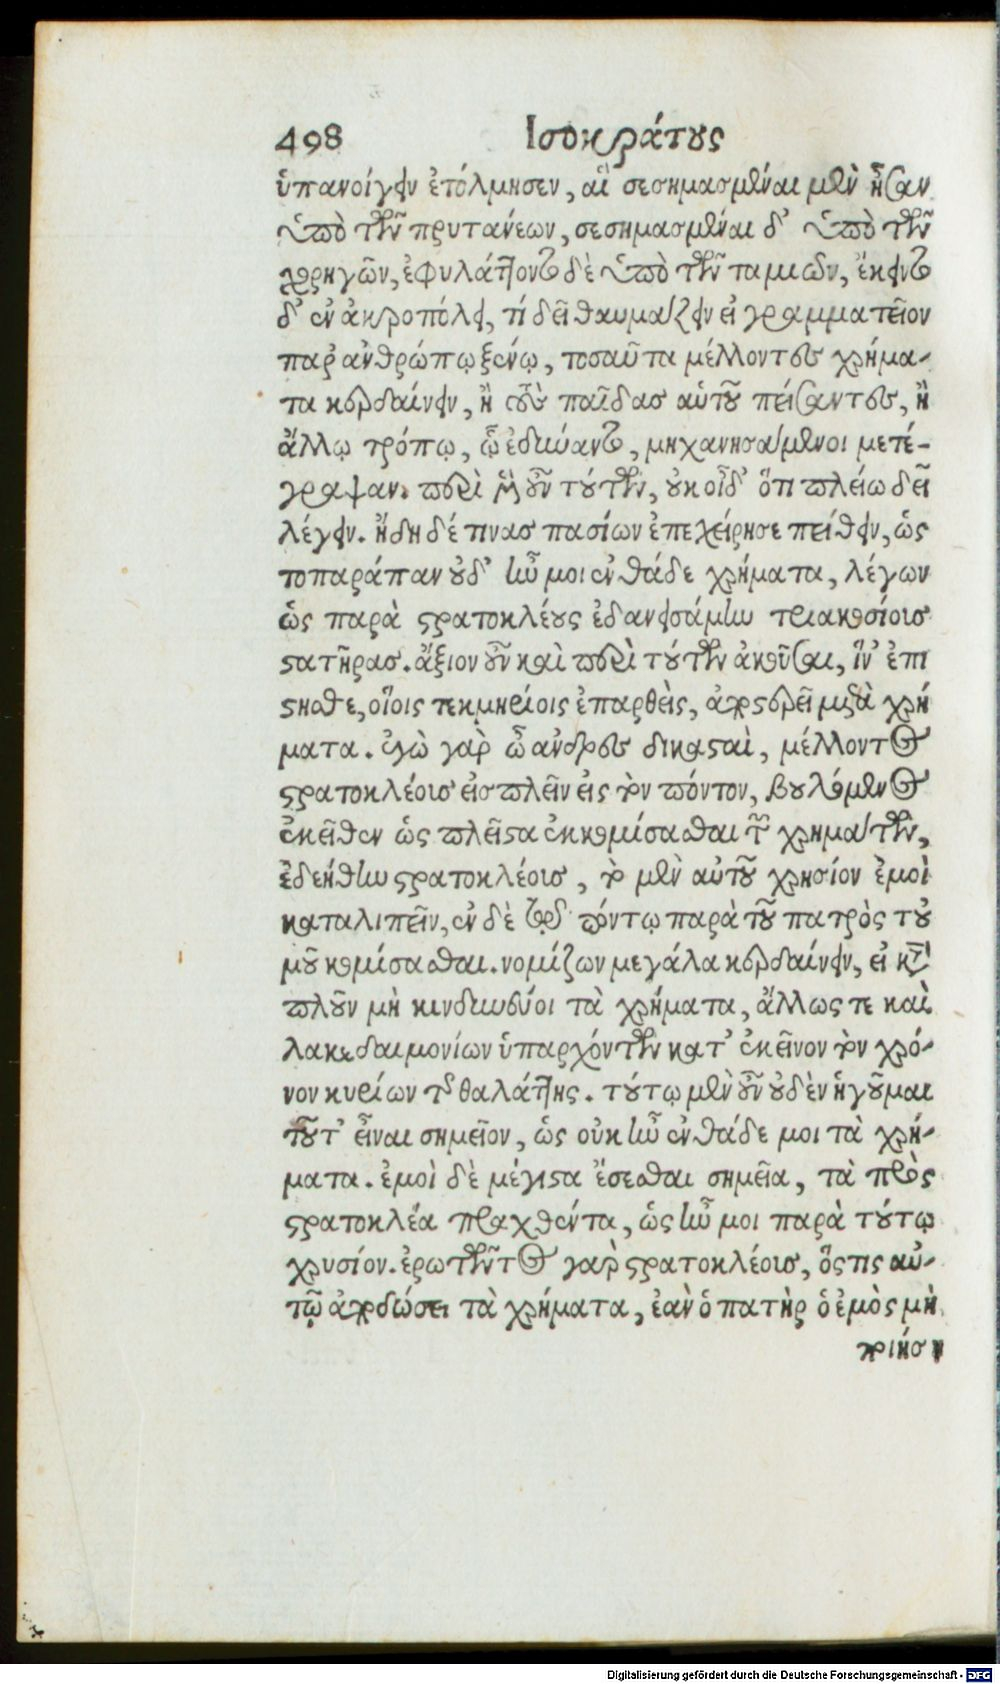 498 Ἰσοκράτους
ὑπανοίγειν ἐτόλμησεν, αἳ σεσημασμέναι μὲν ἦσαν
ὑπὸ τῶν πρυτανέων, σεσημασμέναι δ' ὑπὸ τῶν
χορηγῶν, ἐφυλάττοντο δὲ ὑπὸ τῶν ταμιῶν, ἔκειντο
δ' ἐν ἀκροπόλει, τί δεῖ θαυμάζειν εἰ γραμματεῖον
παρ' ἀνθρώπῳ ξένῳ, τοσαῦτα μέλλοντες χρήμα-
τα κερδαίνειν, ἢ τοὺς παῖδας αὐτοῦ πείσαντες, ἢ
ἄλλῳ τρόπῳ, ᾧ ἐδύναντο, μηχανησάμενοι μετέ-
γραψαν. περὶ μὲν οὖν τούτων, οὐκ οἶδ' ὅτι πλείω δεῖ
λέγειν. ἤδη δέ τινας πασίων ἐπεχείρησε πείθειν, ὡς
τοπαράπαν οὐδ' ἦν μοι ἐνθάδε χρήματα, λέγων
ὡς παρὰ στρατοκλέους ἐδανεισάμην τριακοσίοις
στατῆρας. ἄξιον οὖν καὶ περὶ τούτων ἀκοῦσαι, ἵν' ἐπι
στησθε, οἵοις τεκμηρίοις ἐπαρθεὶς, ἀποστερεῖ με τὰ χρή
ματα. ἐγὼ γὰρ ὦ ἄνδρες δικασταὶ, μέλλοντος
στρατοκλέους εἰσπλεῖν εἰς τὸν πόντον, βουλόμενος
ἐκεῖθεν ὡς πλεῖστα ἐκκομίσασθαι τῶν χρημάτων,
ἐδεήθην στρατοκλέους, τὸ μὲν αὐτοῦ χρυσίον ἐμοὶ
καταλιπεῖν, ἐν δὲ τῷ πόντῳ παρὰ τοῦ πατρὸς τοὐ
μοῦ κομίσασθαι. νομίζων μεγάλα κερδαίνειν, εἰ κατὰ
πλοῦν μὴ κινδυνεύοι τὰ χρήματα, ἄλλως τε καὶ
λακεδαιμονίων ὑπαρχόντων κατ' ἐκεῖνον τὸν χρό-
νον κυρίων τῆς θαλάττης. τούτῳ μὲν οὖν οὐδὲν ἡγοῦμαι
τοῦτ' εἶναι σημεῖον, ὡς οὐκ ἦν ἐνθάδε μοι τὰ χρή-
ματα. ἐμοὶ δὲ μέγιστα ἔσεσθαι σημεῖα, τὰ πρὸς
στρατοκλέα πραχθέντα, ὡς ἦν μοι παρὰ τούτῳ
χρυσίον. ἐρωτῶντος γὰρ στρατοκλέους, ὅστις αὐ-
τῷ ἀποδώσει τὰ χρήματα, ἐὰν ὁ πατὴρ ὁ ἐμὸς μὴ
ποιήσῃ
Digitalisierung gefördert durch die Deutsche Forschungsgemeinschaft - DFG